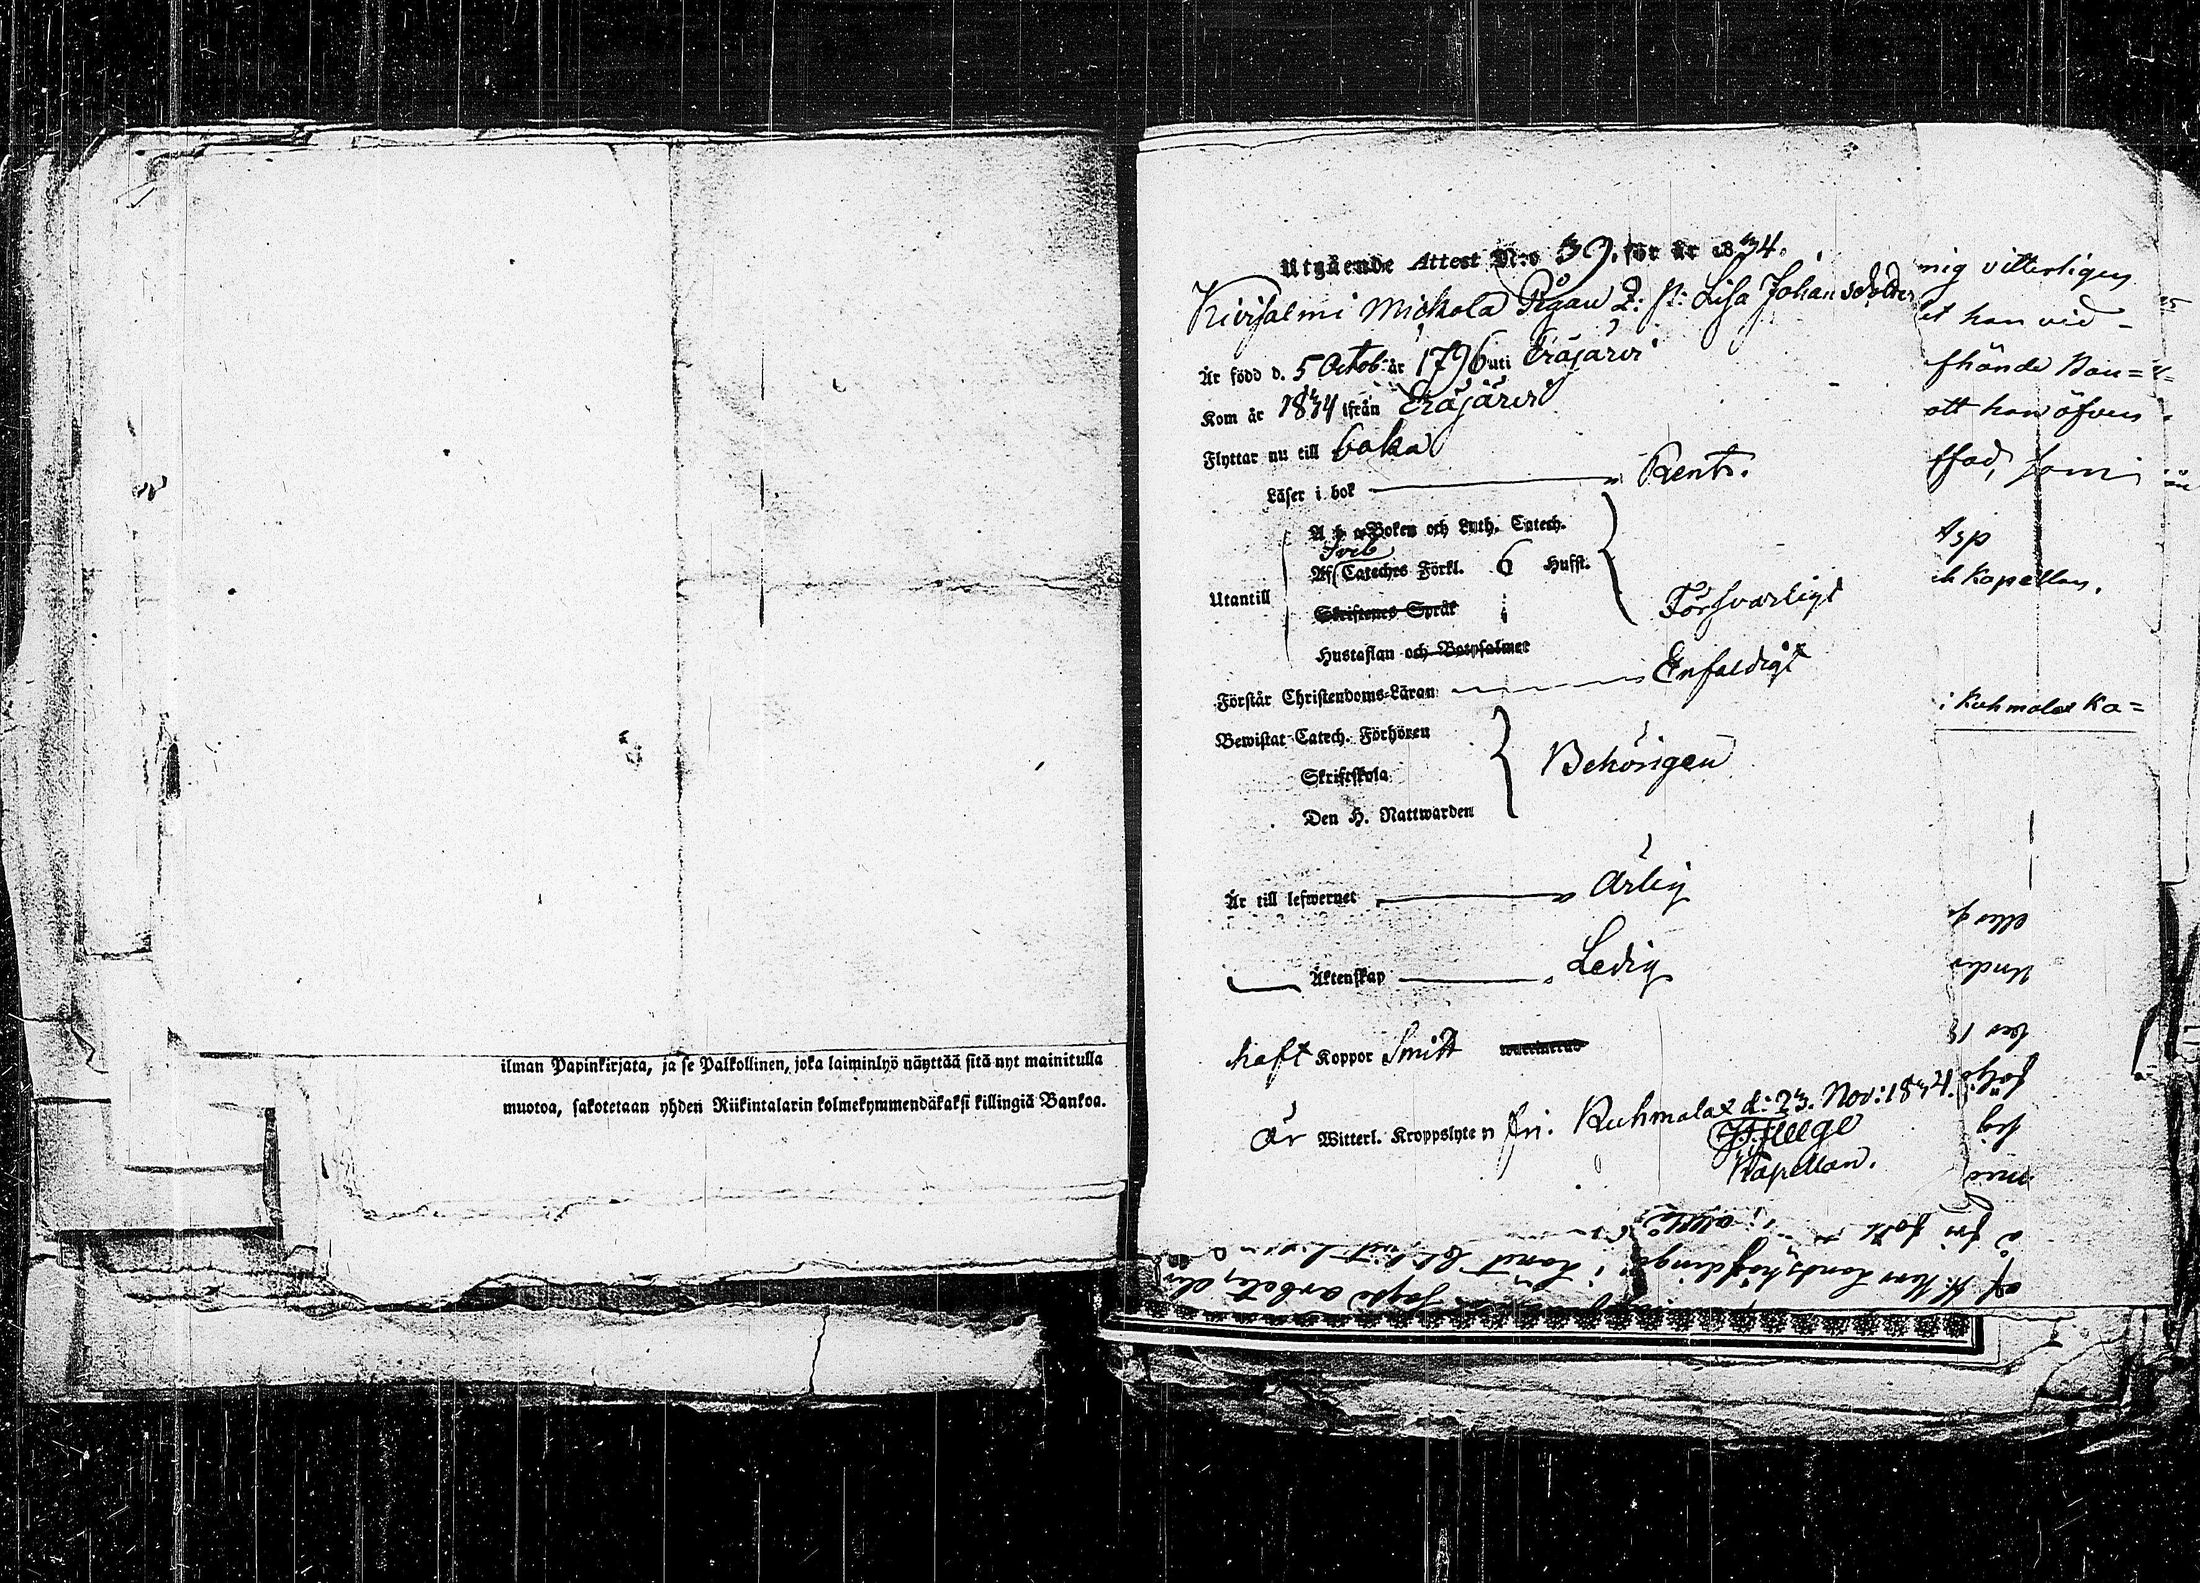 ilman Papinkirjata, ja se Palkollinen, joka laiminlyö näyttää sitä nyt mainitulla
muotoa, sakotetaan yhden Riikintalarin kolmekymmendäkaksi killingiä Bankoa.
Utgående Attest N:o 39. för år 1834.
Kivisalmi Mickola Pigan Lisa Johansdotter
Är född d. 5 Octob: år 1796 uti Eräjärvi
Kom år 1834 ifrån Eräjärvi
Flyttar nu till baka
Läser i bok Rent.
A b c Boken och Luth. Catech.
Sveb
Af Cateches Förkl. 6 Hufst.
Utantill
Skriftenes Språk
Försvarligt
Hustaflan och Botpsalmer
Förstår Christendoms-Läran Enfaldigt
Bewistat Catech. Förhören
Skriftskola Behörigen
Den H. Nattwarden
Är till lefwernet Ärlig
Äktenskap Ledig
haft Koppor Smitt
Är Witterl. Kroppslyte n fri. Kuhmalax d: 23. Nov: 1834.
Kapellan.
mig vitterligen
et han vid-
att han äfven
Kapellan.
i Kuhmalax Ka=